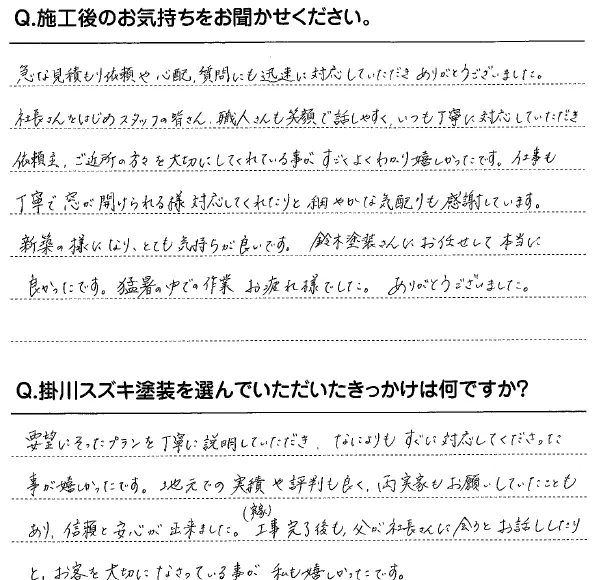 Q.施工後のお気持ちをお聞かせください。
急な見積もり依頼や心配、質問にも迅速に対応していただきありがとうございました。
社長さんをはじめスタッフの皆さん、職人さんも笑顔で話しやすく、いつも丁寧に対応していただき
依頼主、ご近所の方々を大切にしてくれている事がすごくよくわかり嬉しかったです。仕事も
丁寧で窓が開けられる様対応してくれたりと細やかな気配りも感謝しています。
新築の様になり、とても気持ちが良いです。 鈴木塗装さんにお任せして本当に
良かったです。猛暑の中での作業 お疲れ様でした。 ありがとうございました。
Q.掛川スズキ塗装を選んでいただいたきっかけは何ですか?
要望にそったプランを丁寧に説明していただき、なによりもすぐに対応してくださった
事が嬉しかったです。地元での実績や評判も良く、両実家もお願いしていたことも
あり、信頼と安心が出来ました。(実家)工事完了後も、父が社長さんに会うとお話ししたり
と、お客を大切になさっている事が私も嬉しかったです。